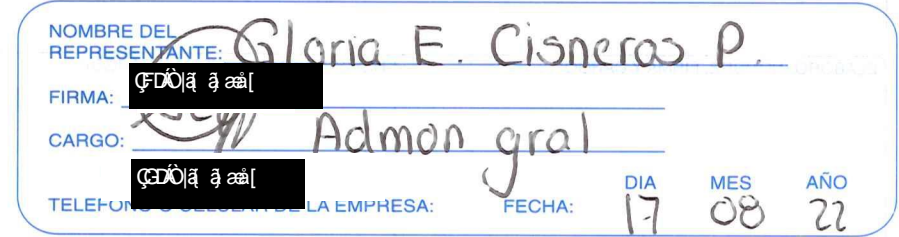 NOMBRE DEL
REPRESENTANTE: Gloria E. Cisneros P.
FIRMA:
CARGO: Admon gral
DIA MES AÑO
TELEFONO O CELULAR DE LA EMPRESA: FECHA: 17 08 22